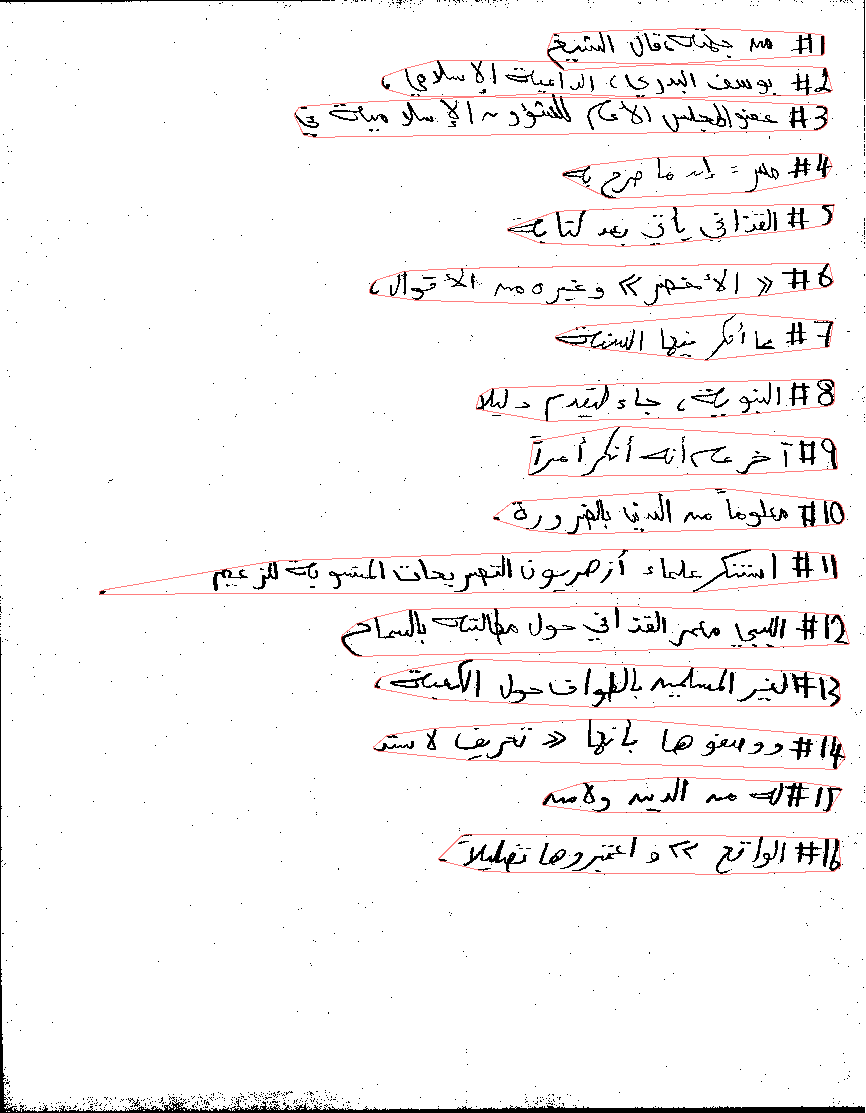 #1 من جهته، قال الشيخ
#2 يوسف البدري، الداعية الإسلامي،
#3 عضو المجلس الأعلى للشؤون الإسلامية في
#4 مصر = إن ما صرح به
#5 القذافي يأتي بعد كتابه
#6 « الأخضر » وغيره من الأقوال،
#7 ما أنكر فيها السنة
#8 النبوية، جاء ليقدم دليلا
#9 آخر على أنه أنكر أمراً
#10 معلوماً من الدنيا بالضرورة.
#11 استنكر علماء أزهريون التصريحات المنسوبة للزعيم
#12 الليبي معمر القذافي حول مطالبته بالسماح
#13 لغير المسلمين بالطواف حول الكعبة،
#14 ووصفوها بأنها « تخريف لا سند
#15 له من الدين ولا من
#16 الواقع » واعتبروها تضليلاً.